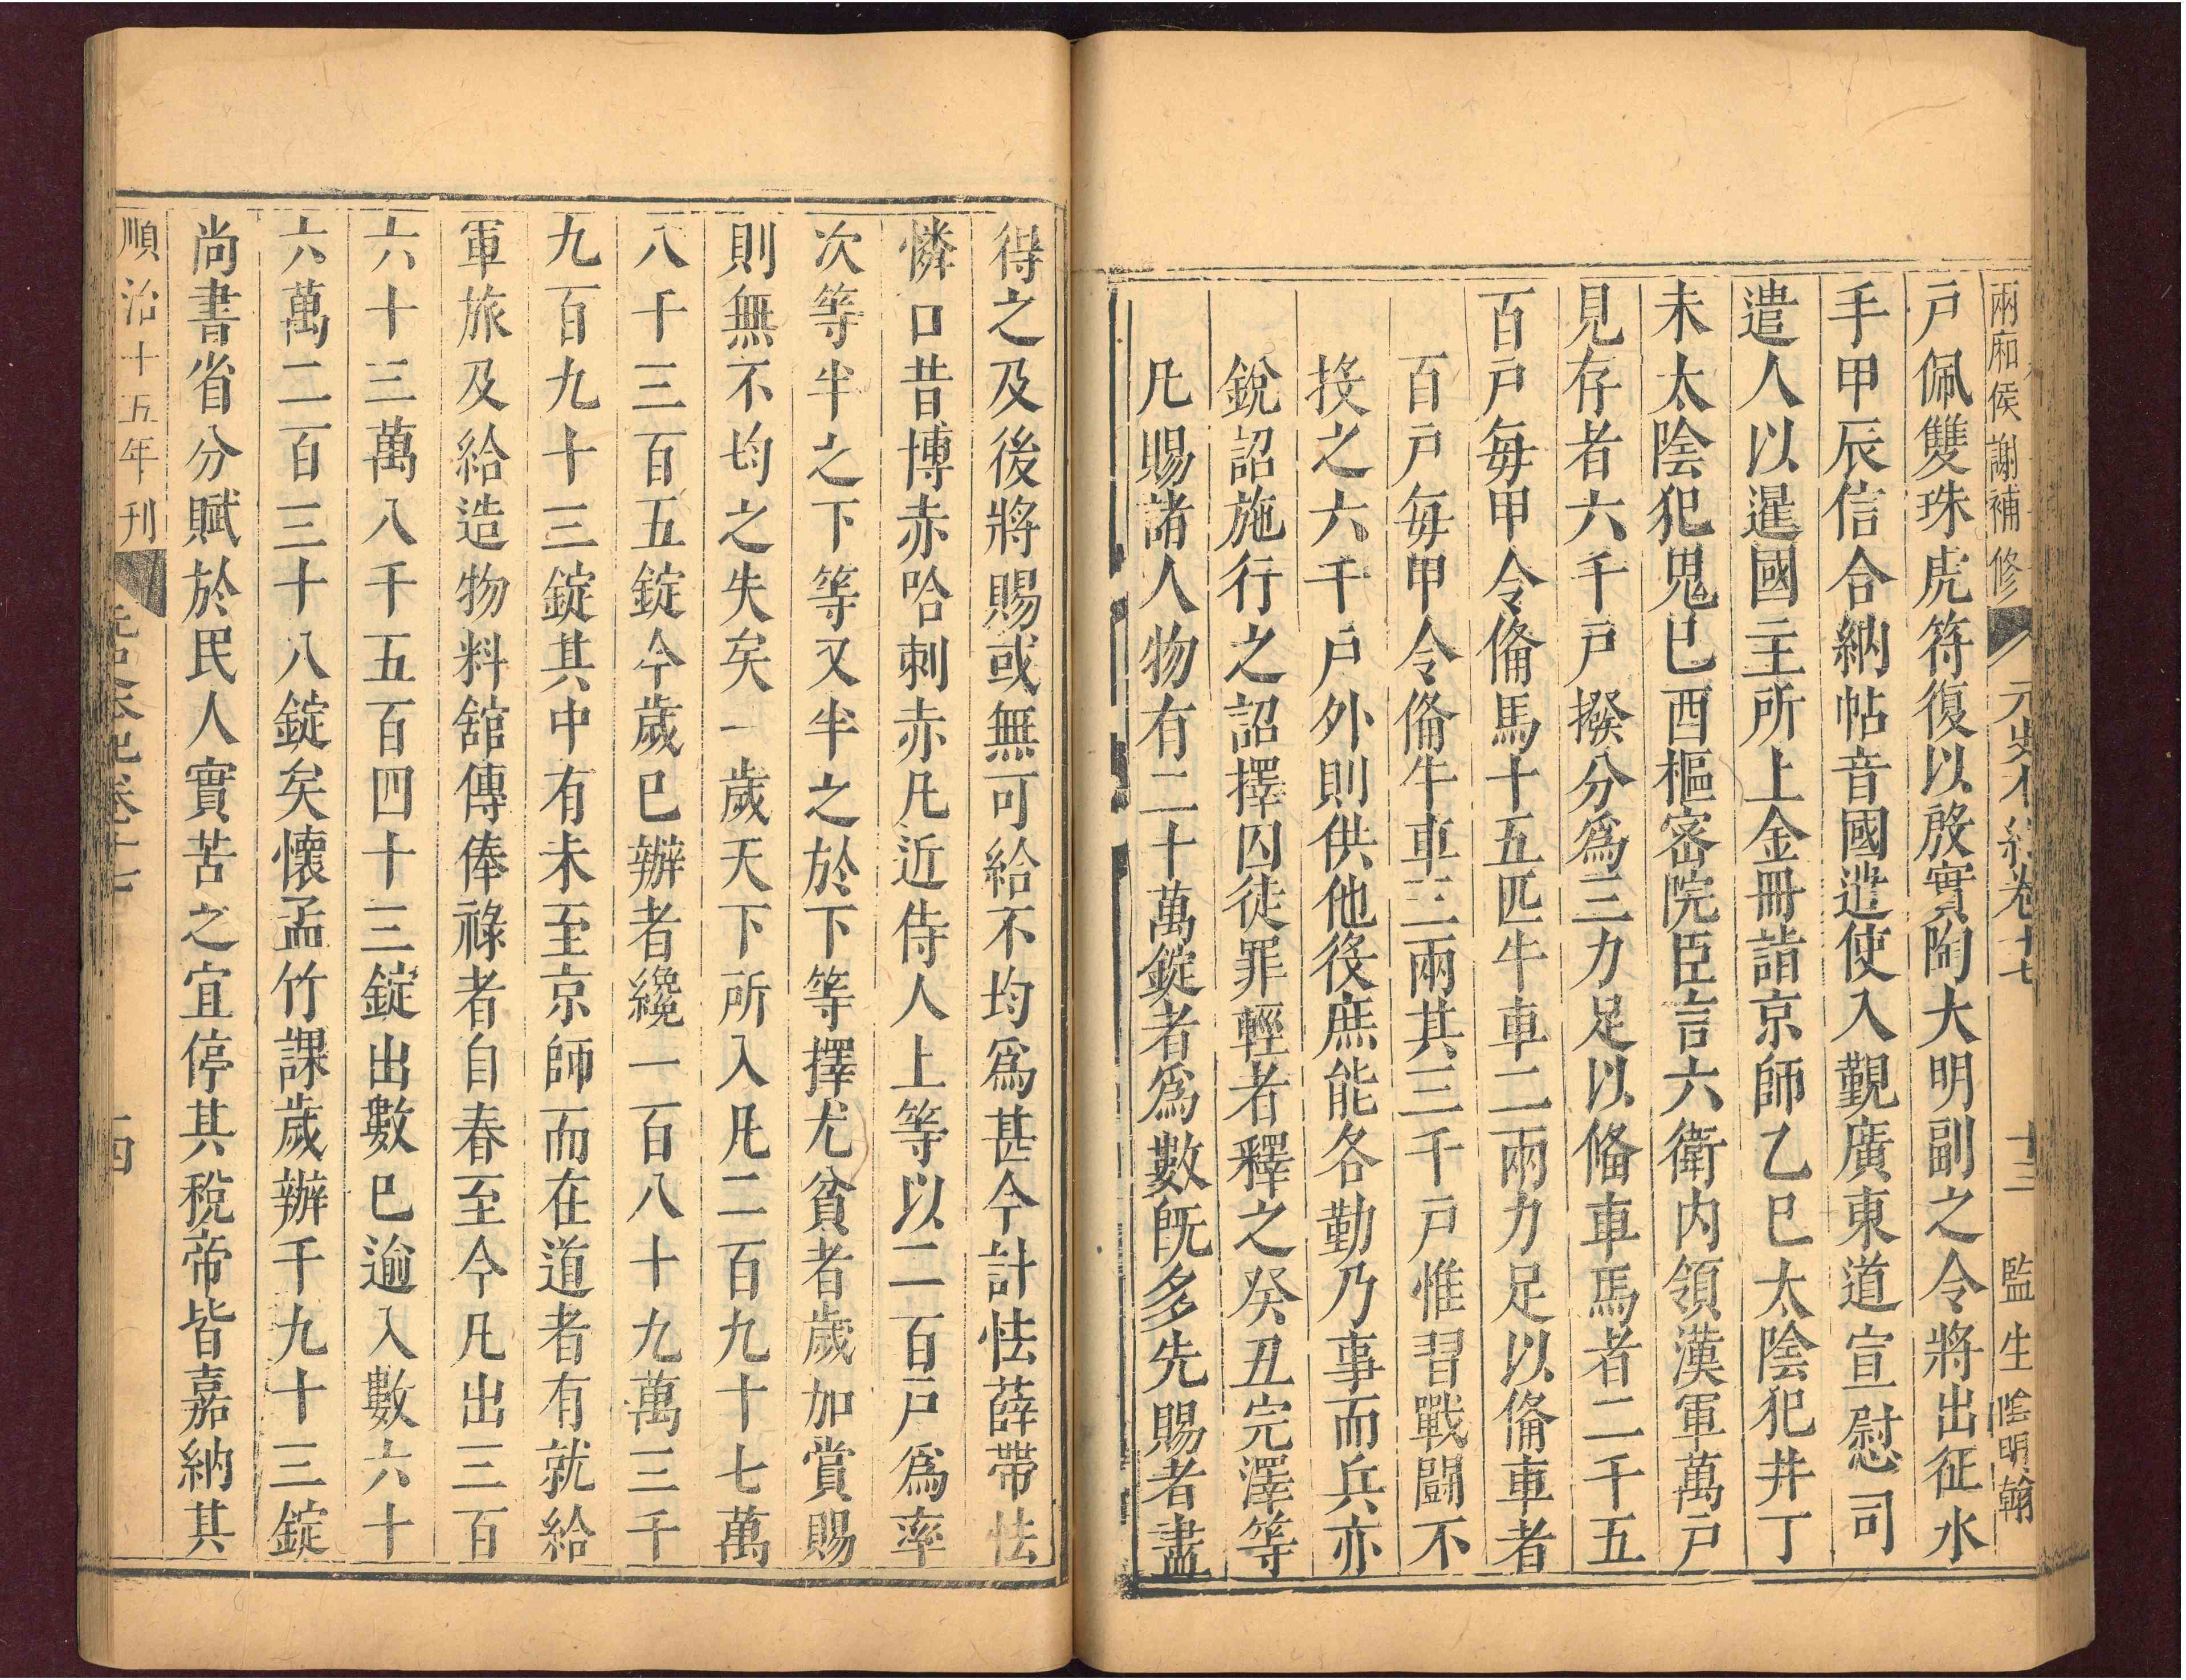 兩廂侯謝補修 元史本紀卷十七 十三 監生陰明翰
戶佩雙珠虎符復以啟實陶大明副之令將出征水
手甲辰信合納帖音國遣使入觐廣東道宣慰司
遣人以暹國主所上金冊詣京師乙巳太陰犯井丁
未太陰犯鬼巳酉樞密院臣言六衛內領漢軍萬戶
見存者六千戶撥分爲三力足以備車馬者二千五
百戶每甲令俻馬十五匹牛車二兩力足以俻車者
百戶每甲令俻牛車三兩其三千戶惟習戰鬪不
㧞之六千戶外則供他役庶能各勤乃事而兵亦
銳詔施行之詔擇囚徒罪輕者釋之癸丑完澤等
凡賜諸人物有二十萬錠者爲數旣多先賜者盡
得之及後將賜或無可給不均爲甚今計怯薛帶怯
憐口昔博赤哈剌赤凡近侍人上等以二百戶爲率
次等半之下等又半之於下等擇尤貧者歲加賞賜
則無不均之失矣一歲天下所入凡二百九十七萬
八千三百五錠今歲巳辦者纔一百八十九萬三千
九百九十三錠其中有未至京師而在道者有就給
軍旅及給造物料舘傳俸祿者自春至今凡出三百
六十三萬八千五百四十三錠出數巳逾入數六十
六萬二百三十八錠矣懷孟竹課歲辦千九十三錠
尚書省分賦於民人實苦之宜停其稅帝皆嘉納其
順治十五年刊